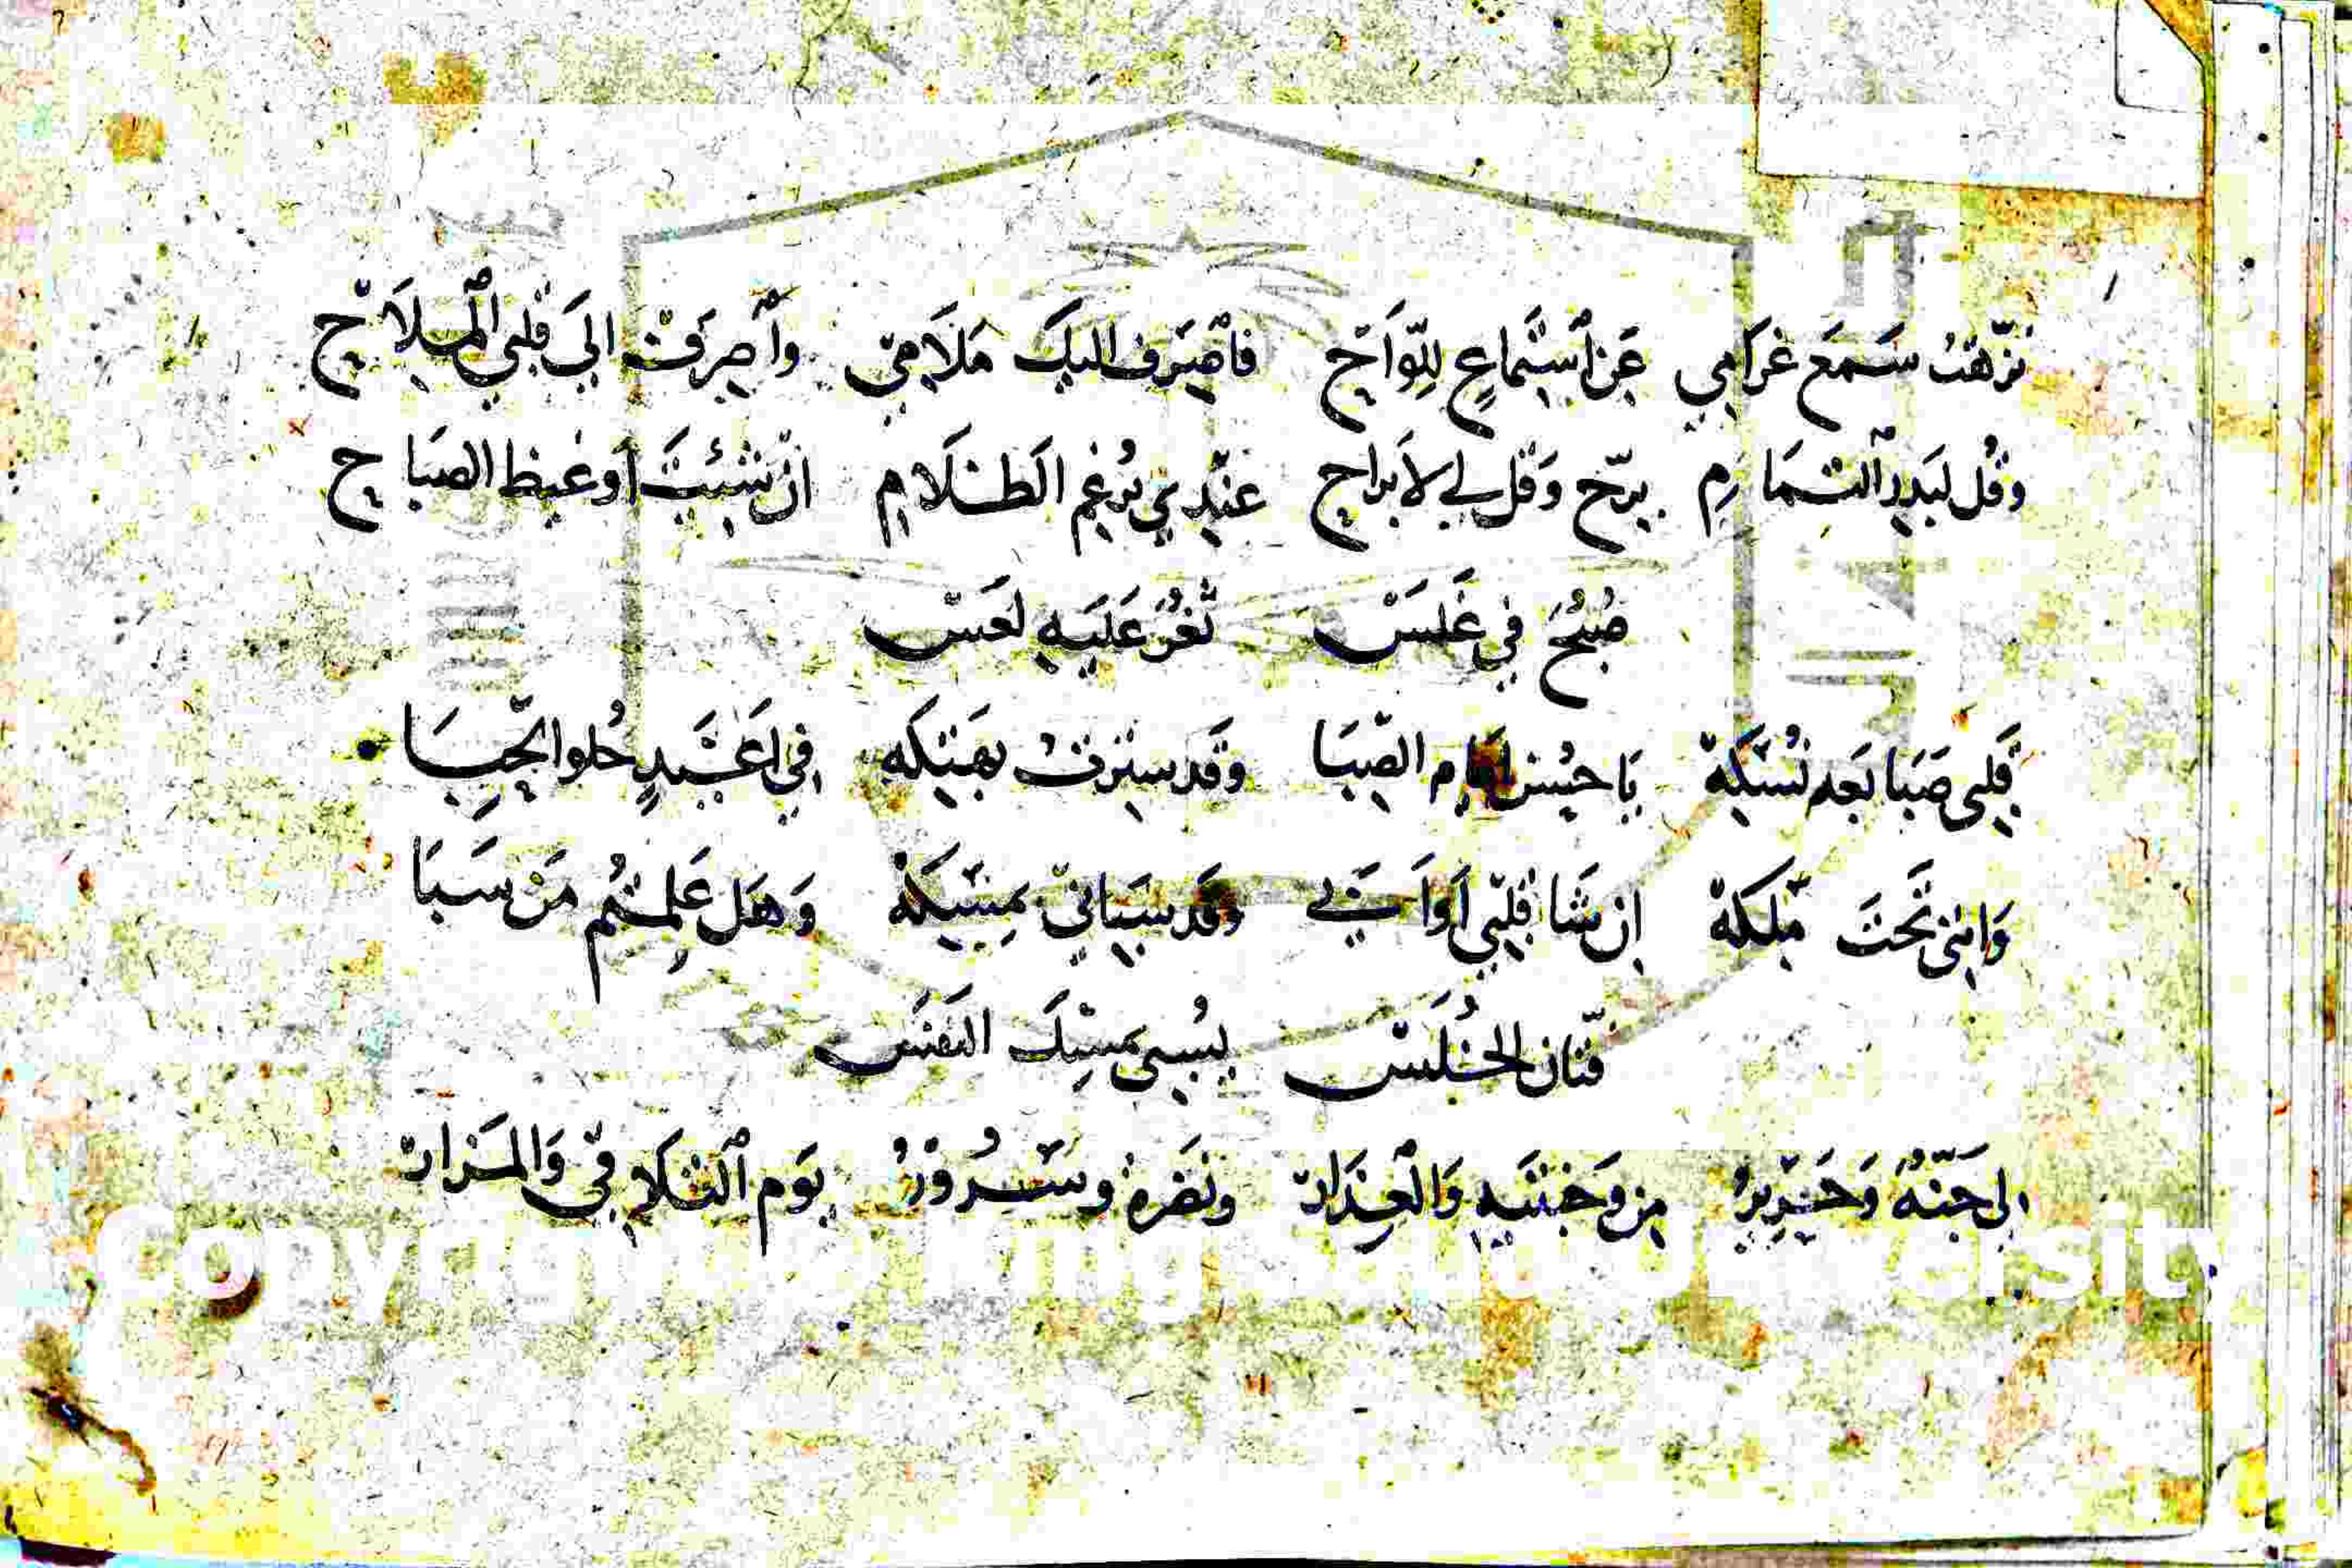 نزّهتُ سَمعَ غرَامي عَن ٱسْتماعٍ للّوَاحْ فاصْرف اليكَ مَلَامِيّ وآصرفْ الىَ قلبي ٱلْمِلَاحْ
وقُل لبَدرِ ٱلسّمَا رِم برّح وَقل لي لاَ براح عنْدِي برُغمِ الَظَلَامِ انْ شئتَ أو غيظ الصَباح
صُبْحُ في غَلسَْ ثغْرُ عَليَهِ لعَسْ
قَلبي صَبا بَعد نُسْكهْ يَا حُسْن ايام الصّبَا وَقد سترتُ بهَتكه في اغَيَدٍ حُلو الحِبَا
وَانني تَحتَ مّلكهْ ان شَا قلبّي اَوْ اَبَي وقد سَباني بمِسْكهْ وَهَل عَلِمتُم مَن سَبَا
فتّان الخُلَسْ يُسبي بمسْكِ النَفَسَْ
لي جَنّهُ وَحَرْيِرُ من وَجنتَيهِ وَالْعِذَارْ ونَضرهْ وسُرُوْرُ يَوم ٱلتَلَاقِي وَالمَزارْ
Copyright © King Saud University